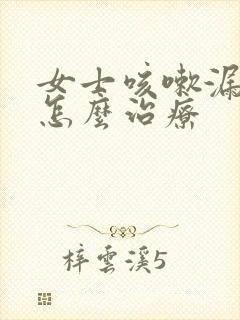 女士咳嗽漏
怎麼治療
梓雲溪5